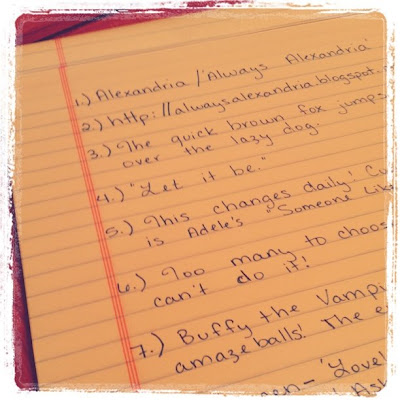 1.) Alexandria / 'Always Alexandria'
2.) http://alwaysalexandria.blogspot.
3.) The quick brown fox jumps
over the lazy dog.
4.) "Let it be."
5.) This changes daily!
is Adele's "Someone Like
6.) Too many to choos
can't do it!
7.) Buffy the Vampi
amazeballs! The e